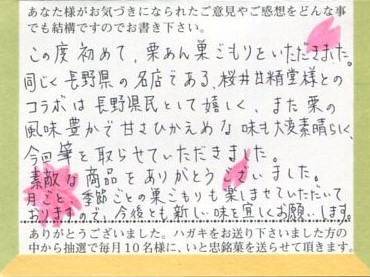 あなた様がお気づきになられたご意見やご感想をどんな事
でも結構ですのでお書き下さい。
この度初めて、栗あん巣ごもりをいただきました。
同じく長野県の名店である、桜井甘精堂様との
コラボは長野県民として嬉しく、また栗の
風味豊かで甘さひかえめな味も大変素晴らしく、
今回筆を取らせていただきました。
素敵な商品をありがとうございました。
月ごと、季節ごとの巣ごもりも楽しませていただいて
おりますので、今後とも新しい味を宜しくお願いします。
ありがとうございました。ハガキをお送り下さいました方の
中から抽選で毎月10名様に、いと忠銘菓を送らせて頂きます。